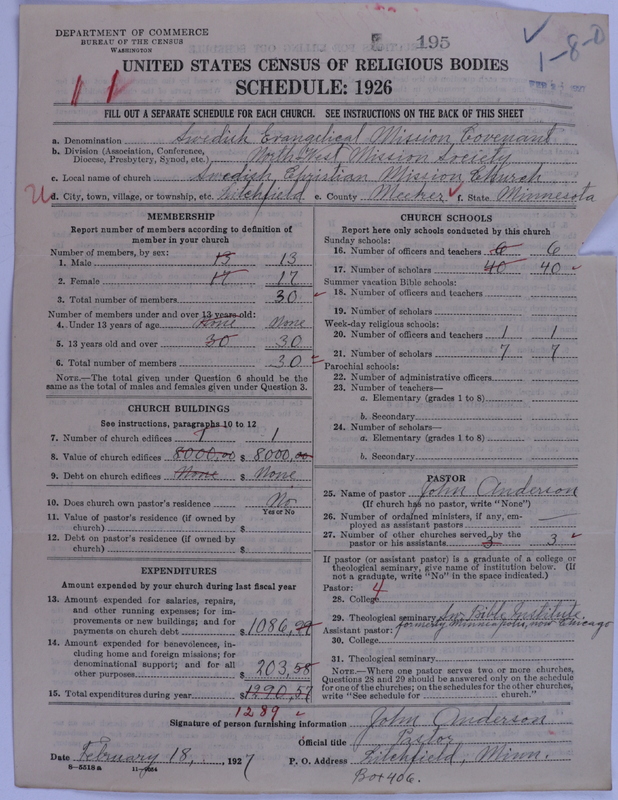 DEPARTMENT OF COMMERCE
BUREAU OF THE CENSUS
WASHINGTON
195
1-8-0
UNITED STATES CENSUS OF RELIGIOUS BODIES
SCHEDULE: 1926
FILL OUT A SEPARATE SCHEDULE FOR EACH CHURCH. SEE INSTRUCTIONS ON THE BACK OF THIS SHEET
a. Denomination Swedish Evangelical Mission Covenant
b. Division (Association, Conference, Diocese, Presbytery, Synod, etc.) North West Mission Society
c. Local name of church Swedish Christian Mission Church
d. City, town, village, or township, etc. Litchfield e. County Meeker f. State Minnesota
MEMBERSHIP
Report number of members according to definition of
member in your church
Number of members, by sex:
1. Male 13 13
2. Female 17 17
3. Total number of members 30
Number of members under and over 13 years old:
4. Under 13 years of age None None
5. 13 years old and over 30 30
6. Total number of members 30
NOTE.—The total given under Question 6 should be the
same as the total of males and females given under Question 3.
CHURCH BUILDINGS
See instructions, paragraphs 10 to 12
7. Number of church edifices 1 1
8. Value of church edifices 8000.00 $ 8000,00
9. Debt on church edifices None $ None
10. Does church own pastor's residence No
Yes or No
11. Value of pastor's residence (if owned by
church) $
12. Debt on pastor's residence (if owned by
church) $
EXPENDITURES
Amount expended by your church during last fiscal year
13. Amount expended for salaries, repairs,
and other running expenses; for im-
provements or new buildings; and for
payments on church debt $ 1086,99
14. Amount expended for benevolences, in-
cluding home and foreign missions; for
denominational support; and for all
other purposes $ 203,58
15. Total expenditures during year $ 1290,57
1289
CHURCH SCHOOLS
Report here only schools conducted by this church
Sunday schools:
16. Number of officers and teachers 6 6
17. Number of scholars 40 40
Summer vacation Bible schools:
18. Number of officers and teachers
19. Number of scholars
Week-day religious schools:
20. Number of officers and teachers 1 1
21. Number of scholars 7 7
Parochial schools:
22. Number of administrative officers
23. Number of teachers—
a. Elementary (grades 1 to 8)
b. Secondary
24. Number of scholars—
a. Elementary (grades 1 to 8)
b. Secondary
PASTOR
25. Name of pastor John Anderson
(If church has no pastor, write "None")
26. Number of ordained ministers, if any, em-
ployed as assistant pastors —
27. Number of other churches served by the
pastor or his assistants 3 3
If pastor (or assistant pastor) is a graduate of a college or
theological seminary, give name of institution below. (If
not a graduate, write "No" in the space indicated.)
Pastor: 4
28. College
29. Theological seminary Sw. Bible Institute.
formerly Minneapolis, now Chicago
Assistant pastor:
30. College
31. Theological seminary
NOTE.—Where one pastor serves two or more churches,
Questions 28 and 29 should be answered only on the schedule
for one of the churches; on the schedules for the other churches,
write "See schedule for church."
Signature of person furnishing information John Anderson
Official title Pastor
Date February 18, 1927 P. O. Address Litchfield, Minn.
Box 406.
8—5518a 11—9224